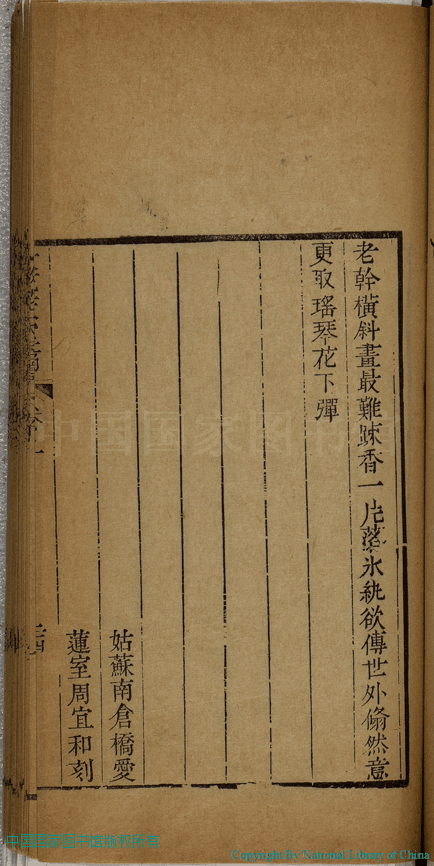 老幹橫斜畫最難踈香一片落氷紈欲傳世外翛然意
更取瑤琴花下彈
姑蘇南倉橋愛
蓮室周宜和刻
中国国家图书
Copyright By National Library of China